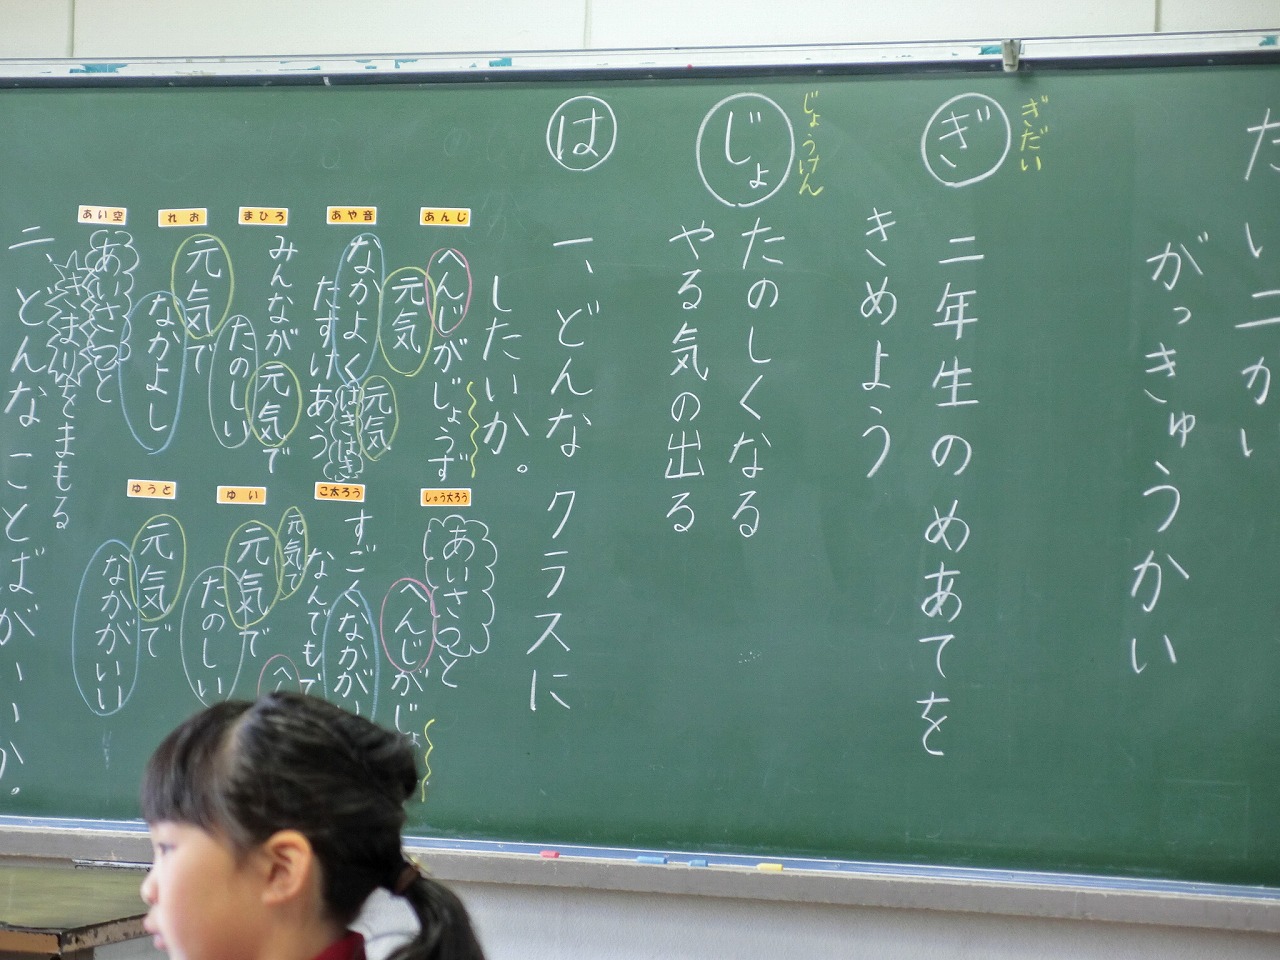 だい二かい
がっきゅうかい
ぎだい
ぎ
二年生のめあてを
きめよう
じょうけん
じょ
たのしくなる
やる気の出る
は
一、どんなクラスに
したいか。
あんじ
へんじがじょうず
元気
あや音
なかよく
元気
はきはき
たすけあう
まひろ
みんなが元気で
たのしい
れお
元気で
なかよし
あい空
あいさつと
きまりをまもる
しゅう太ろう
あいさつと
へんじがじょ
こ太ろう
すごくなかが
なんでも
元気で
ゆい
元気で
たのしい
ゆうと
元気で
なかがいい
二、どんなことばがいいか。